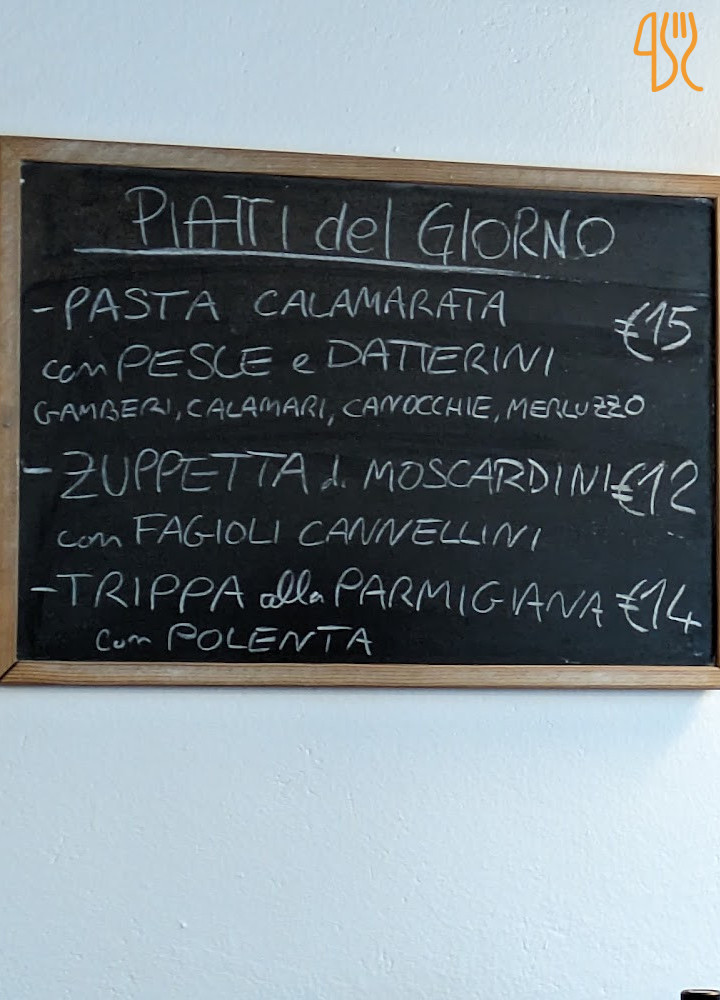 PIATTI del GIORNO
- PASTA CALAMARATA €15
con PESCE e DATTERINI
GAMBERI, CALAMARI, CANOCCHIE, MERLUZZO
- ZUPPETTA di MOSCARDINI €12
con FAGIOLI CANNELLINI
- TRIPPA alla PARMIGIANA €14
con POLENTA